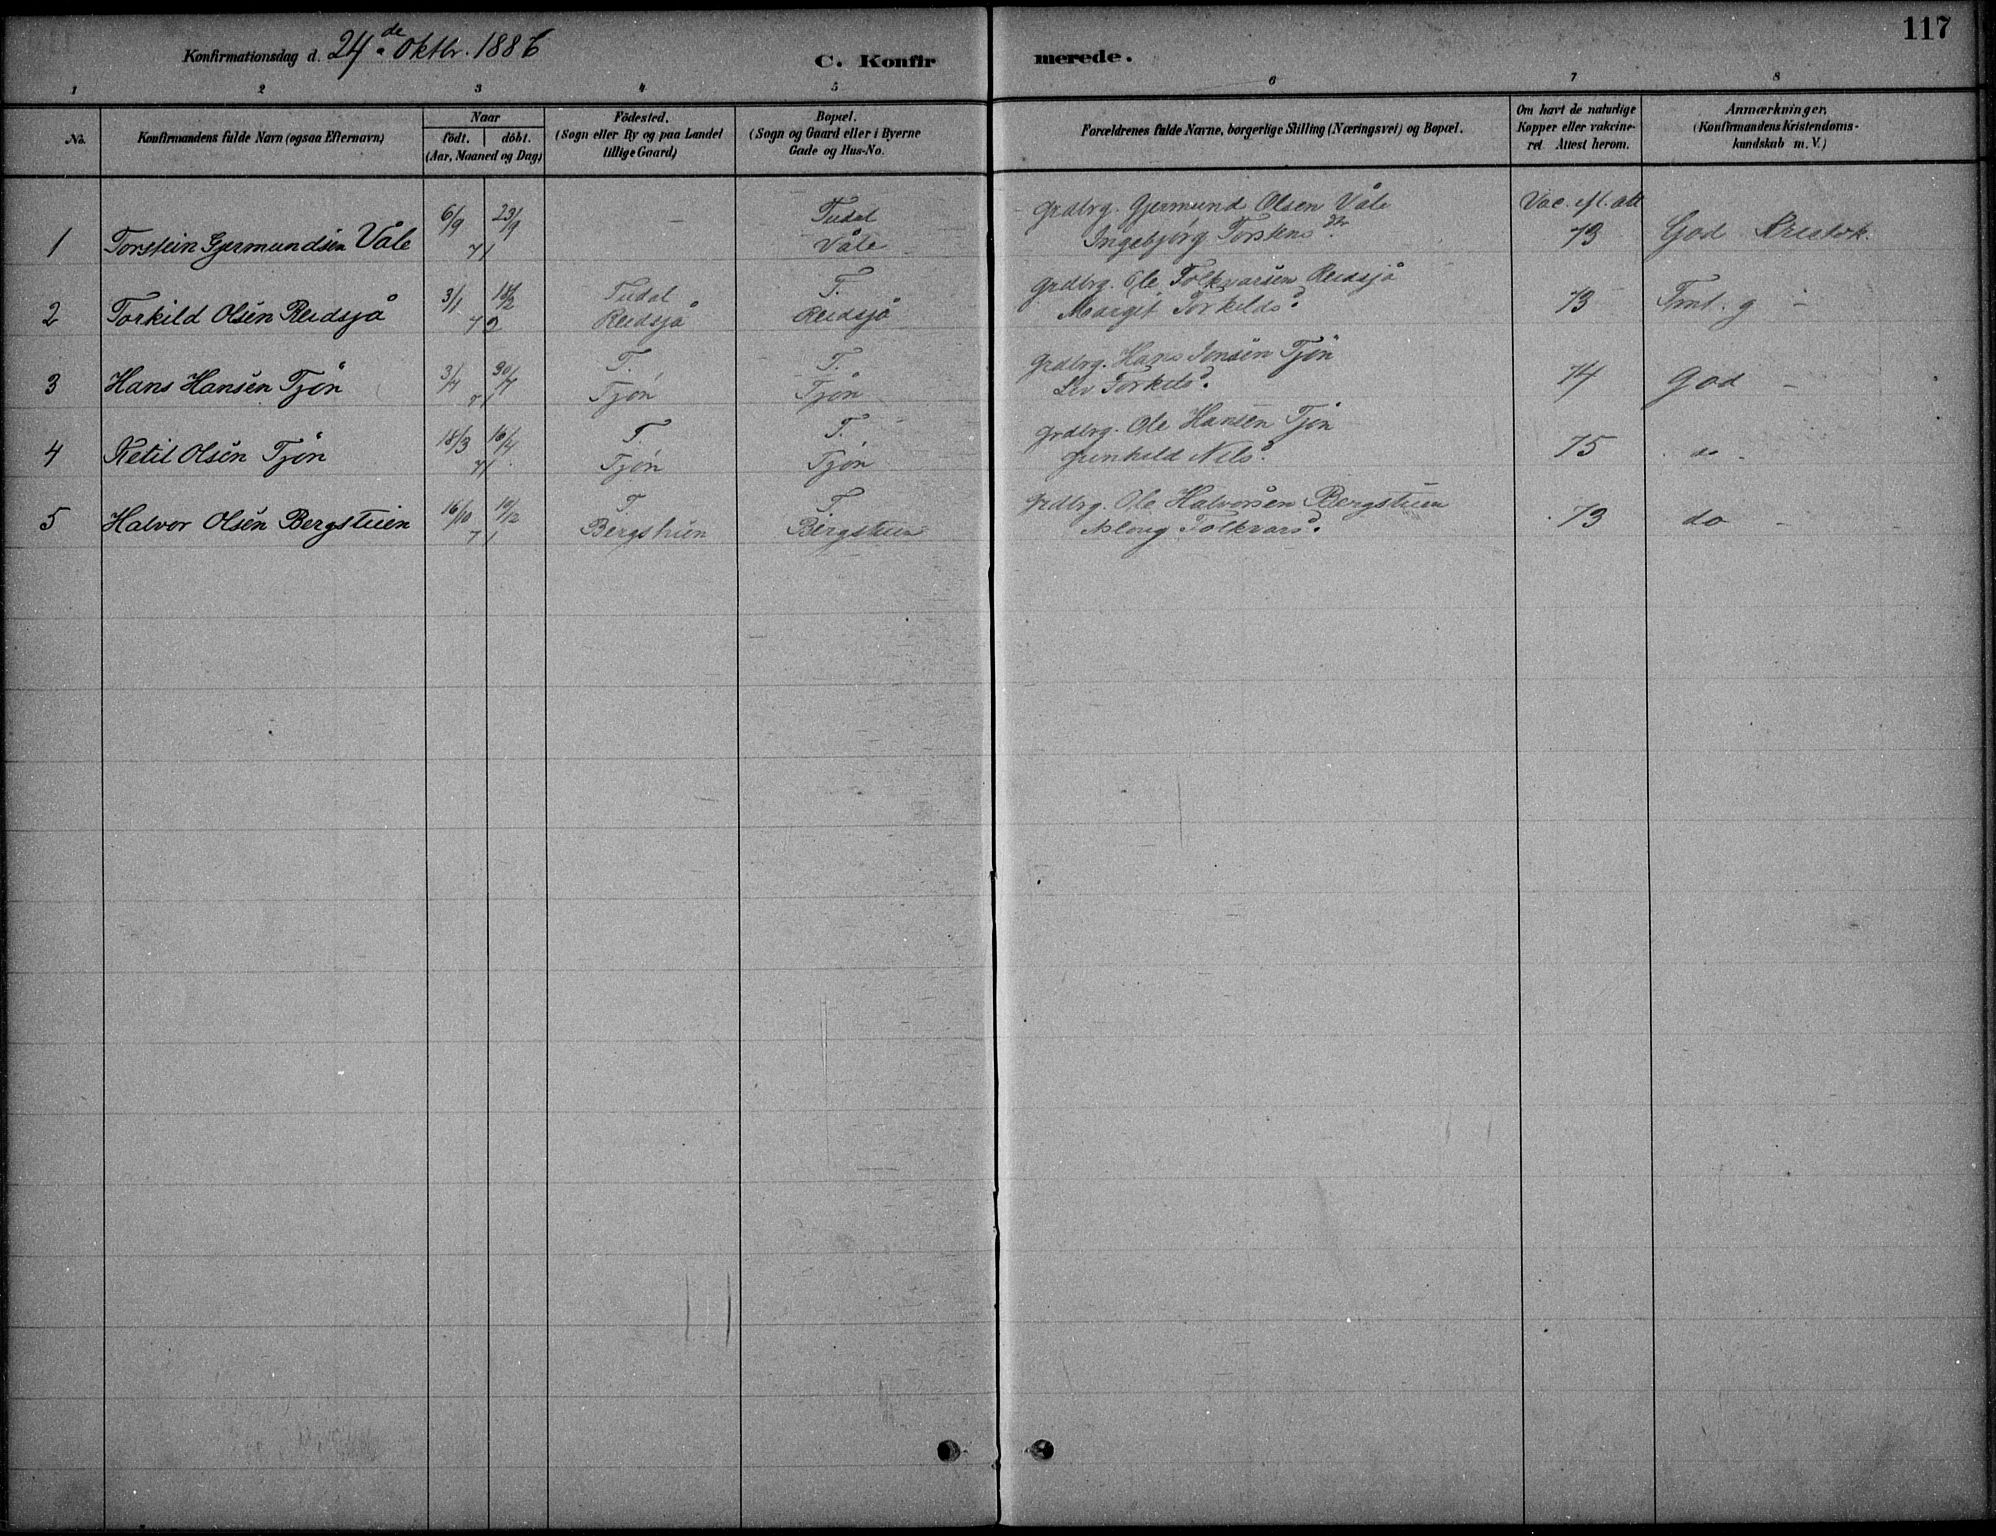 117
Konfirmationsdag d. 24de Oktbr. 1886
C. Konfirmerede.
1 2 3 4 5 6 7 8
No.
Konfirmandens fulde Navn (ogsaa Efternavn)
Naar
födt. döbt.
(Aar, Maaned og Dag)
Födested.
(Sogn eller By og paa Landet
tillige Gaard)
Bopæl.
(Sogn og Gaard eller i Byerne
Gade og Hus-No.
Forældrenes fulde Navne, borgerlige Stilling (Næringsvei) og Bopæl.
Om havt de naturlige
Kopper eller vakcine-
ret Attest herom.
Anmærkninger,
(Konfirmandens Kristendoms-
kundskab m. V.)
6/9 23/9 – Tudal Grdbrg. Gjermund Olsen Våle Vac. efl. att
1 Torstein Gjermundsen Våle 71 Våle Ingebjørg Torstensdtr. 73 God Kristdk.
3/1 18/2 Tudal T. Grdbrg. Ole Folkvarsen Reidsjå
2 Torkild Olsen Reidsjå 72 Reidsjå Reidsjå Margit Torkildsd. 73 Tmt. g –
30/7 T. T. Grdbrg. Hans Jonsen Tjön
3 Hans Hansen Tjön 71 Tjön Tjön Liv Torkelsd. 74 God –
18/3 16/4 T. T. Grdbrg. Ole Hansen Tjön
4 Ketil Olsen Tjön 71 Tjön Tjön Gunhild Nilsd. 75 do –
16/10 10/12 T. T. Grdbrg. Ole Halvorsen Bergstuen
5 Halvor Olsen Bergstuen 71 Bergstuen Bergstuen Asloug Folkvarsd. 73 do –